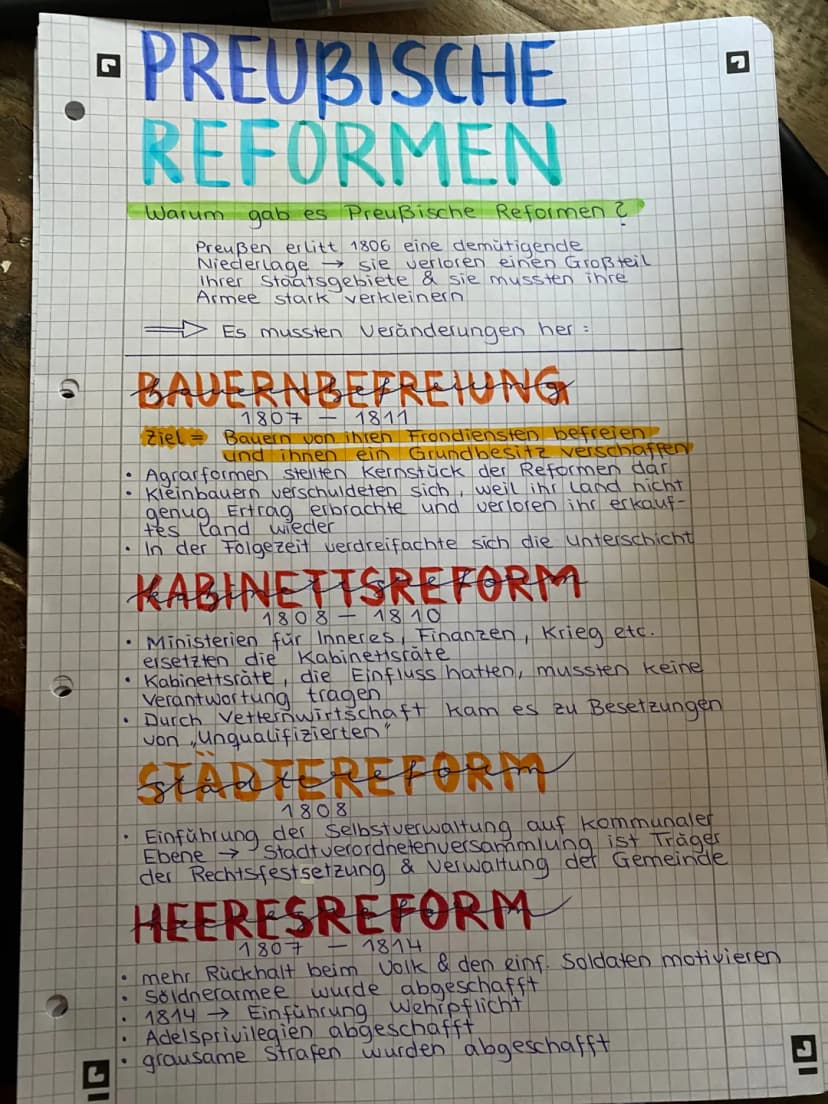 PREUßISCHE
REFORMEN
Warum gab es Preußische Reformen?
Preußen erlitt 1806 eine demütigende
Niederlage → sie verloren einen Großteil
Ihrer Staatsgebiete & sie mussten ihre
Armee stark verkleinern
⇒ Es mussten Veränderungen her:
BAUERNBEFREIUNG
1807 – 1811
Ziel = Bauern von ihren Frondiensten befreien
und ihnen ein Grundbesitz verschaffen
• Agrarformen stellten Kernstück der Reformen dar
• Kleinbauern verschuldeten sich, weil ihr Land nicht
genug Ertrag erbrachte und verloren ihr erkauf-
tes Land wieder
• In der Folgezeit verdreifachte sich die Unterschicht
KABINETTSREFORM
1808 – 1810
• Ministerien für Inneres, Finanzen, Krieg etc.
ersetzten die Kabinettsräte
• Kabinettsräte, die Einfluss hatten, mussten keine
Verantwortung tragen
• Durch Vetternwirtschaft kam es zu Besetzungen
von „Unqualifizierten"
STÄDTEREFORM
1808
• Einführung der Selbstverwaltung auf kommunaler
Ebene → Stadtverordnetenversammlung ist Träger
der Rechtsfestsetzung & Verwaltung der Gemeinde
HEERESREFORM
1807 – 1814
• mehr Rückhalt beim Volk & den einf. Soldaten motivieren
• Söldnerarmee wurde abgeschafft
• 1814 → Einführung Wehrpflicht
• Adelsprivilegien abgeschafft
• grausame Strafen wurden abgeschafft